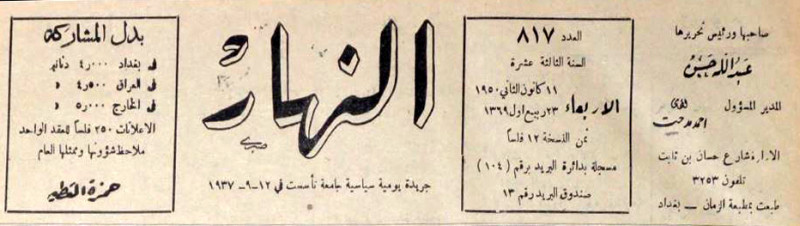 صاحبها ورئيس تحريرها
عبدالله حسن
المدير المسؤول
احمد مدحت
الادارة شارع حسان بن ثابت
تلفون ٣٢٥٣
طبعت بمطبعة الزمان — بغداد
العدد ٨١٧
السنة الثالثة عشرة
الاربعاء
١١ كانون الثاني ١٩٥٠
٢٣ ربيع اول ١٣٦٩
ثمن النسخة ١٢ فلساً
مسجلة بدائرة البريد برقم (١٠٤)
صندوق البريد رقم ١٣
النهار
صبري
جريدة يومية سياسية جامعة تأسست في ١٢-٩-١٩٣٧
بدل المشاركة
في بغداد ٤٫٠٠٠ دنانير
في العراق ٤٫٥٠٠ »
في الخارج ٥٫٠٠٠ »
الاعلانات ٢٥٠ فلساً للعقد الواحد
ملاحظ شؤونها وممثلها العام
حمزة القطبي